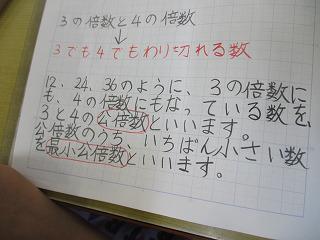 3の倍数と4の倍数
↓
3でも4でもわり切れる数
12、24、36のように、3の倍数に
も、4の倍数にもなっている数を、
3と4の公倍数といいます。
公倍数のうち、いちばん小さい数
を最小公倍数といいます。